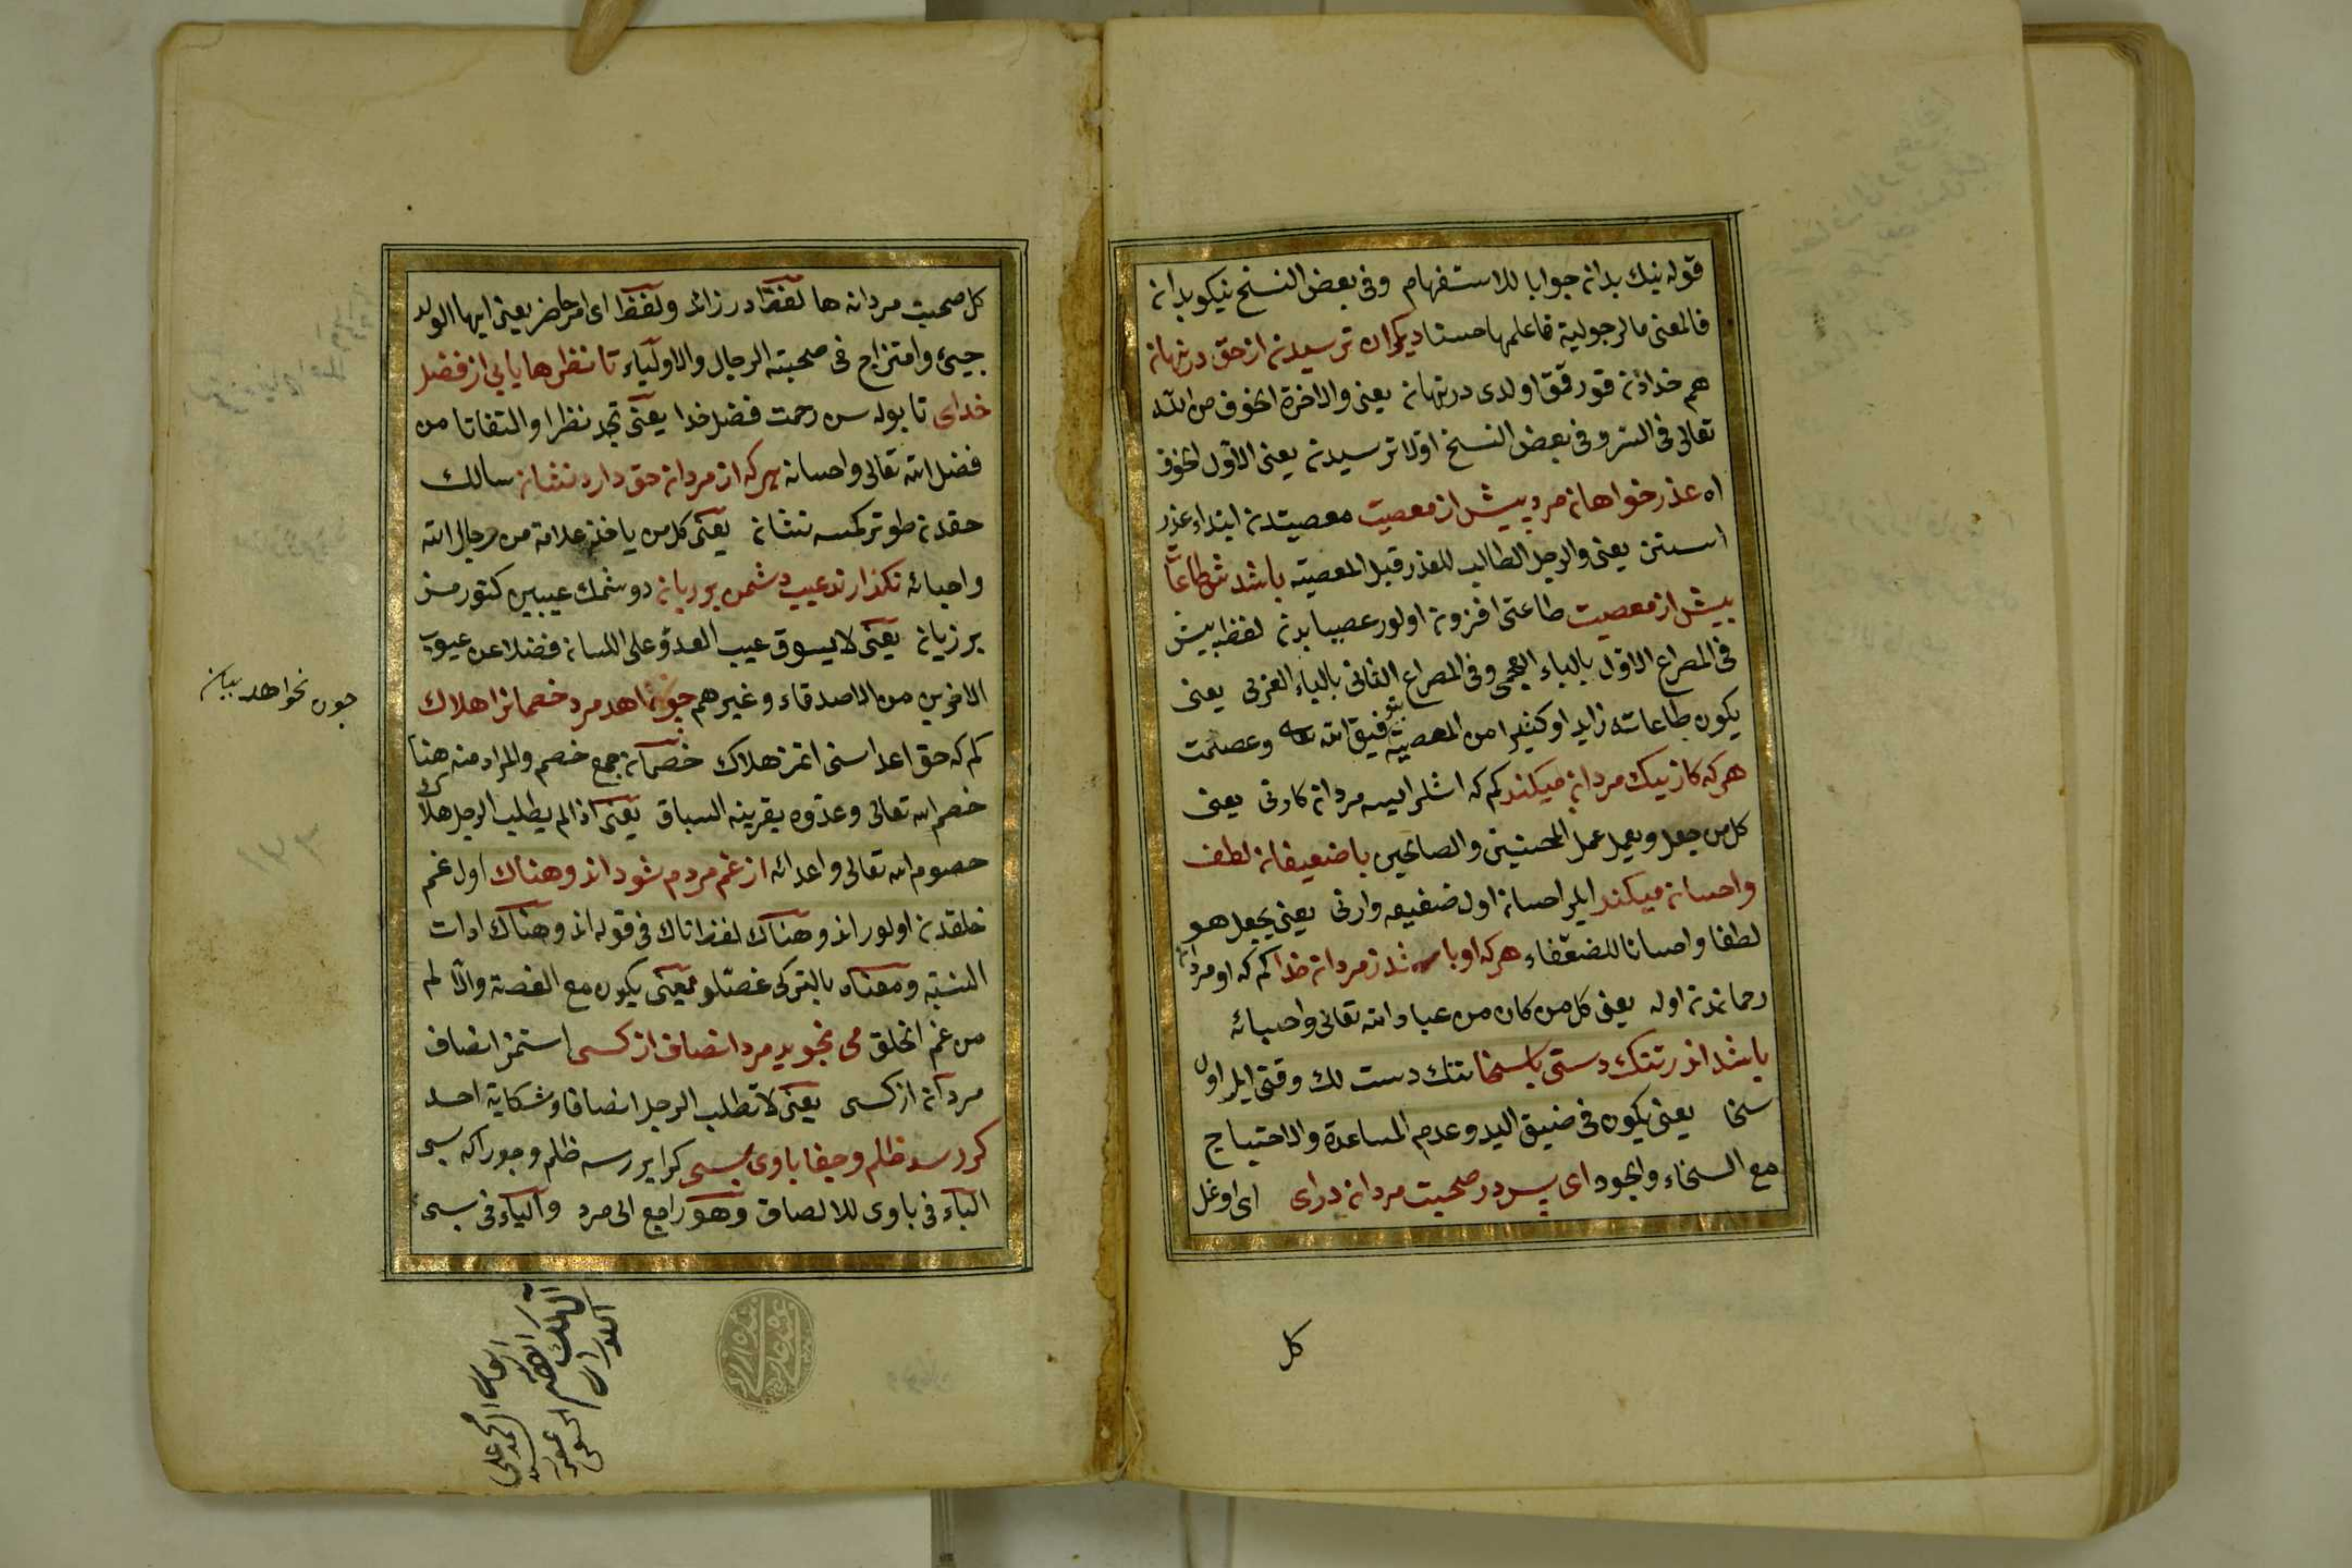 قوله نيك بدان جوابا للاستفهام وفى بعض النسخ نيكو بدان
فالمعنى ما الرجولية فاعلمها حسنا ديكران ترسيدن از حق در نهان
هم خدادن قورقمق اولدى در نهان يعنى والاخرة الخوف من الله
تعالى فى السر وفى بعض النسخ اولا ترسيدن يعنى الاول الخوف
اه عذر خواهان مرد پيش از معصيت معصيتدن ابتداء عذر
استنن يعنى والرجل الطالب للعذر قبل المعصية باشدش طاعات
بيش از معصيت طاعتى افزون اولور عصياندن لفظ بيش
فى المصراع الاول بالباء العجمى وفى المصراع الثانى بالباء العربى يعنى
يكون طاعاته زايدا وكثيرا من المعصية بتوفيق الله تعا وعصمت
هر كه كار نيك مردان ميكند كم كه اشلر ايسه مردان كارنى يعنى
كل من جعل ويعمل عمل المحسنين والصالحين با ضعيفان لطف
واحسان ميكند ايلر احسان اول ضعيفه وارنى يعنى يجعل هو
لطفا واحسانا للضعفاء هر كه او باشد ز مردان خدا كم كه او مردان
رحماندن اوله يعنى كل من كان من عباد الله تعالى واحبائه
باشد اندر تنك دستى با سخا تنك دست لك وقتى ايلر اول
سخا يعنى يكون فى ضيق اليد وعدم المساعدة والاحتياج
مع السخاء والجود اى پسر در صحبت مردان دراى اى اوغل
كل
كل صحبت مردان ها لفظ در زائد ولفظ اى امر حاضر يعنى ايها الولد
جيئ وامتزاج فى صحبته الرجال والاولياء تا نظرها يابى از فضل
خداى تا بوله سن رحمت فضل خدا يعنى تجد نظرا والتفاتا من
فضل الله تعالى واحسانه هر كه از مردان حق دارد نشان سالك
حقدن طوتر كمسه نشان يعنى كل من ياخذ علامة من رجال الله
واحبائه نكذارند عيب دشمن بر زبان دوشمنك عيبين كتورمز
بر زبان يعنى لا يسوق عيب العدو على اللسان فضلا عن عيوب
الاخرين من الاصدقاء وغيرهم چون نخواهد مرد خصمانرا هلاك
كم كه حق اعداسنى اتمز هلاك خصمان جمع خصم والمراد منه هنا
خصم الله تعالى وعدوه بقرينه السباق يعنى اذا لم يطلب الرجل هلاك
خصوم الله تعالى واعدائه از غم مردم شود اندوهناك اول غم
خلقدن اولور اندوهناك لفظ ناك فى قوله اندوهناك ادات
النسبة ومعناه بالتركى غصه‌لو يعنى يكون مع الغصة والالم
من غم الخلق مى نجويد مرد انصاف از كسى استمز انصاف
مردان از كسى يعنى لا تطلب الرجل انصافا وشكاية احد
كر رسد ظلم وجفا باوى بسى كر ايررسه ظلم وجور اكه بسى
الباء فى باوى للالصاق وهو راجع الى مرد والياء فى بسى
چون نخواهد بيان